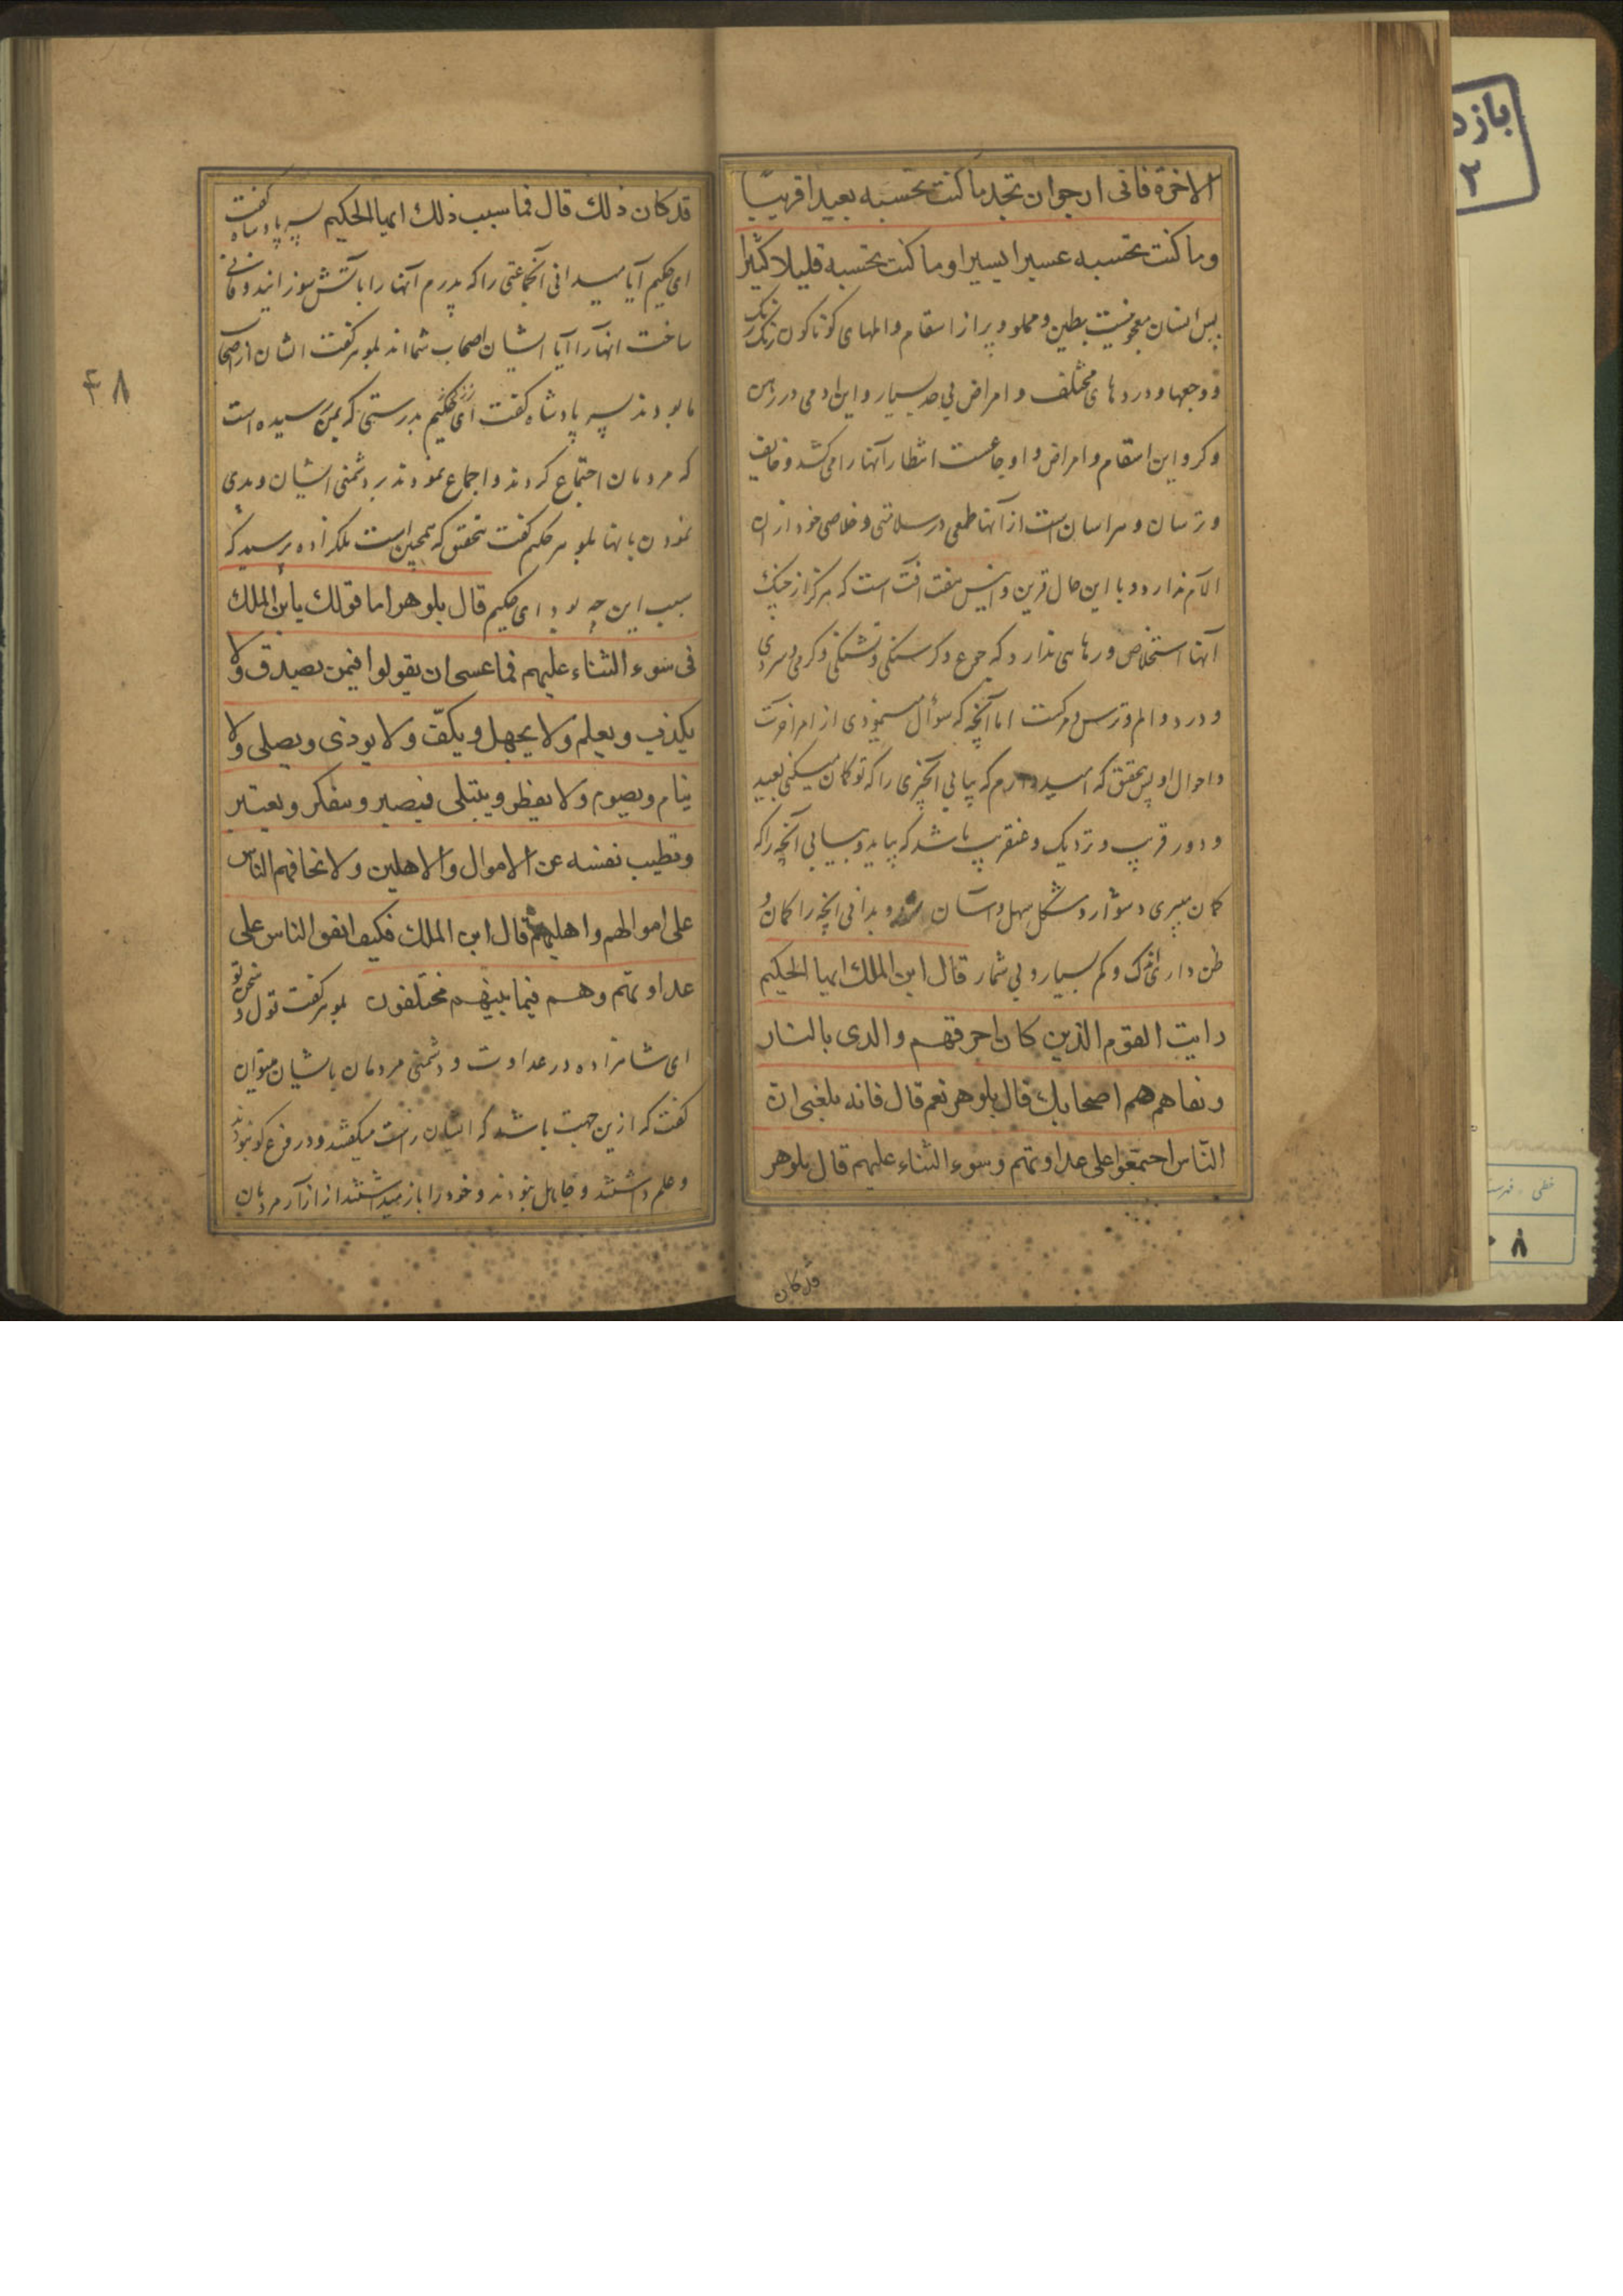 الاخرة فانی ارجوان تجد ما کنت تحسبه بعیدا قریبًا
وما کنت تحسبه عسیرا یسیرا وما کنت تحسبه قلیلا کثیرا
پس انسان معجونیست بطین و مملو و پر از اسقام و المهای کوناکون رنک رنک
و وجعها و دردهای مختلف و امراض بی حد بسیار و این ادمی در رهن
و کرو این اسقام و امراض و اوجاعست انتظار آنها را می کشد و خایف
و ترسان و هراسان است از آنها طمعی در سلامتی و خلاصی خود از ان
الام ندارد و با این حال قرین و انیس هفت افت است که هرکز از چنک
آنها استخلاص و رهایی ندارد که جوع و کرسنکی و تشنکی و کرمی و سردی
و درد و الم و ترس و مرکست اما آنچه که سؤال مینمودی از امر اخرت
و احوال او پس بتحقق که امیدوارم که بیابی آنچیزی را که تو کمان میکنی بعید
و دور قریب و نزدیک و عنقریب باشد که بیاید و بیابی آنچه را که
کمان میبری دشوار و مشکل سهل و اسان و بدانی انچه را کمان و
ظن داری اندک و کم بسیار و بی شمار قال ابن الملك ایها الحکیم
رایت القوم الذین کان احرقهم والدی بالنار
ونفاهم هم اصحابك قال بلوهر نعم قال فانه بلغنی ان
النّاس اجتمعوا علی عداوتهم وسوء الثناء علیهم قال بلوهر
قد کان
قد کان ذلك قال فما سبب ذلك ایها الحکیم پسر پادشاه کفت
ای حکیم آیا میدانی آنجماعتی را که پدرم آنها را باتش سوزانید و فانی
ساخت انها را آیا ایشان اصحاب شما اند بلوهر کفت ایشان از اصحاب
ما بودند پسر پادشاه کفت ای حکیم بدرستی که بمن رسیده است
که مردمان اجتماع کردند و اجماع نمودند بر دشمنی ایشان و بدی
نمودن بانها بلوهر حکیم کفت بتحقق که همچنین است ملکزاده پرسید که
سبب این چه بود ای حکیم قال بلوهر اما قولك یابن الملك
فی سوء الثناء علیهم فما عسی ان یقولوا فیمن یصدق ولا
یکذب ویعلم ولا یجهل ویکفّ ولا یوذی ویصلی ولا
ینام ویصوم ولا یفطر ویبتلی فیصبر ویتفکر ویعتبر
وتطیب نفسه عن الاموال والاهلین ولا تخافهم الناس
علی اموالهم واهلیهم قال ابن الملك فکیف اتفق الناس علی
عداوتهم وهم فیما بینهم مختلفون بلوهر کفت قول و سخن تو
ای شاهزاده در عداوت و دشمنی مردمان با ایشان میتوان
کفت که از این جهت باشد که ایشان راست میکفتند و دروغ کو نبودند
و علم داشتند و جاهل نبودند و خود را باز میداشتند از ازار مردمان
۴۸